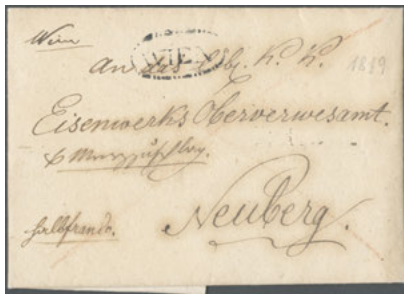 Wien
WIEN
an das löbl. K. K.
1819
Eisenwerks Oberverwesamt.
Mürzzuschlag.
halbfranco.
Neuberg.